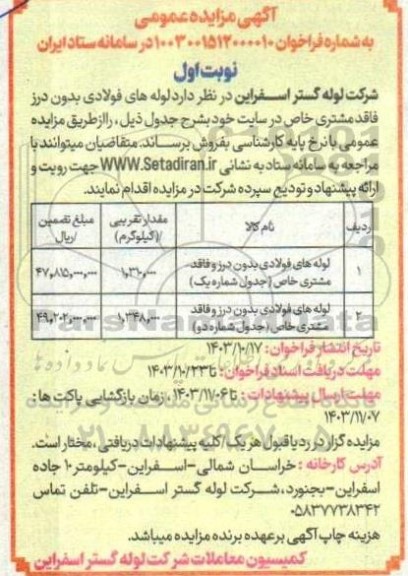 آگهی مزایده عمومی
به شماره فراخوان ۱۰۰۳۰۰۱۵۱۲۰۰۰۰۱۰ در سامانه ستاد ایران
نوبت اول
شرکت لوله گستر اسفراین در نظر دارد لوله های فولادی بدون درز
فاقد مشتری خاص در سایت خود بشرح جدول ذیل ، را از طریق مزایده
عمومی با نرخ پایه کارشناسی بفروش برساند. متقاضیان میتوانند با
مراجعه به سامانه ستاد به نشانی www.Setadiran.ir جهت رویت و
ارائه پیشنهاد و تودیع سپرده شرکت در مزایده اقدام نمایند.
ردیف نام کالا مقدار تقریبی /(کیلوگرم) مبلغ تضمین /ریال
۱ لوله های فولادی بدون درز و فاقد مشتری خاص (جدول شماره یک) ۱,۳۱۰,۰۰۰ ۴۷,۸۱۵,۰۰۰,۰۰۰
۲ لوله های فولادی بدون درز و فاقد مشتری خاص (جدول شماره دو) ۱,۳۴۸,۰۰۰ ۴۹,۲۰۲,۰۰۰,۰۰۰
تاریخ انتشار فراخوان : ۱۴۰۳/۱۰/۱۷
مهلت دریافت اسناد فراخوان : تا ۱۴۰۳/۱۰/۲۳
مهلت ارسال پیشنهادات : تا ۱۴۰۳/۱۱/۰۶ ، زمان بازگشایی پاکت ها :
۱۴۰۳/۱۱/۰۷
مزایده گزار در رد یا قبول هر یک / کلیه پیشنهادات دریافتی ، مختار است.
آدرس کارخانه : خراسان شمالی-اسفراین-کیلومتر ۱۰ جاده
اسفراین-بجنورد، شرکت لوله گستر اسفراین-تلفن تماس
۰۵۸۳۷۷۳۸۳۴۲
هزینه چاپ آگهی بر عهده برنده مزایده میباشد.
کمیسیون معاملات شرکت لوله گستر اسفراین